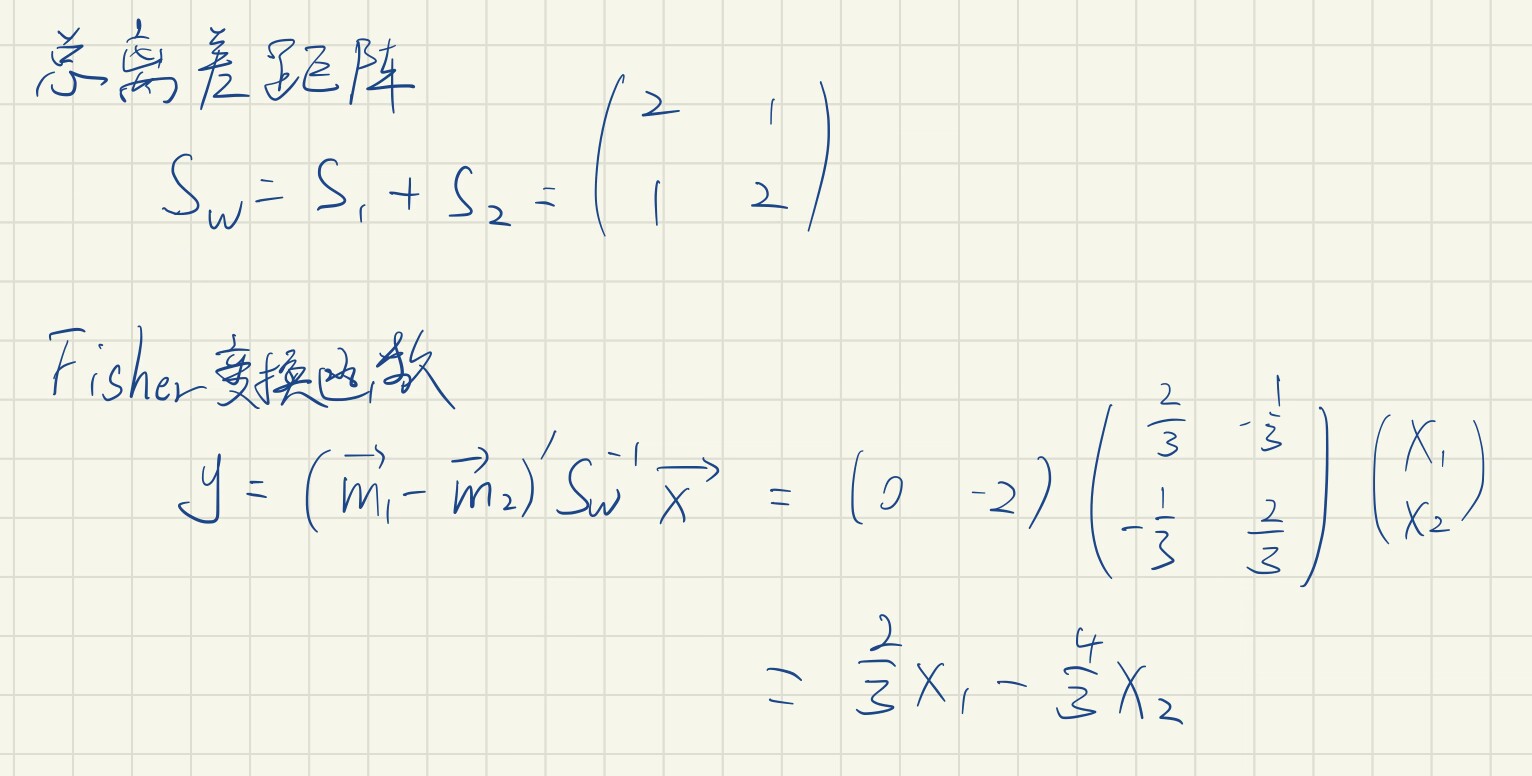 总离差距阵
S_w = S_1 + S_2 = \begin{pmatrix} 2 & 1 \\ 1 & 2 \end{pmatrix}
Fisher变换函数
y = (\vec{m}_1 - \vec{m}_2)' S_w^{-1} \vec{x} = (0 \quad -2) \begin{pmatrix} \frac{2}{3} & -\frac{1}{3} \\ -\frac{1}{3} & \frac{2}{3} \end{pmatrix} \begin{pmatrix} x_1 \\ x_2 \end{pmatrix}
= \frac{2}{3} x_1 - \frac{4}{3} x_2